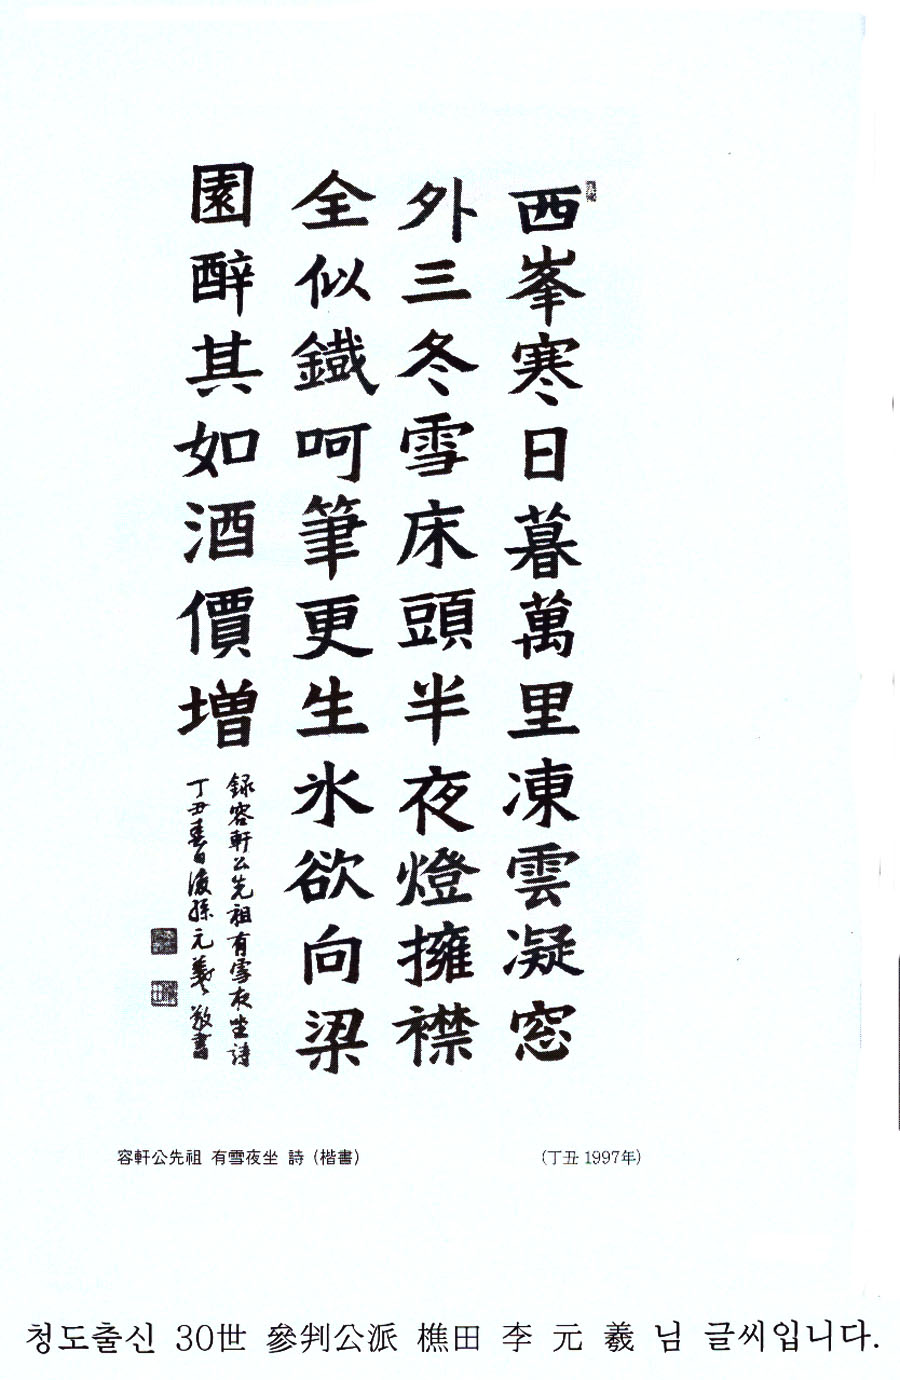 西峯寒日暮萬里凍雲凝窓
外三冬雪床頭半夜燈擁襟
全似鐵呵筆更生氷欲向梁
園醉其如酒價增
録容軒公先祖有雪夜坐詩
丁丑春日後孫元羲敬書
容軒公先祖 有雪夜坐 詩 (楷書)
(丁丑 1997年)
청도출신 30世 參判公派 樵田 李 元 羲 님 글씨입니다.